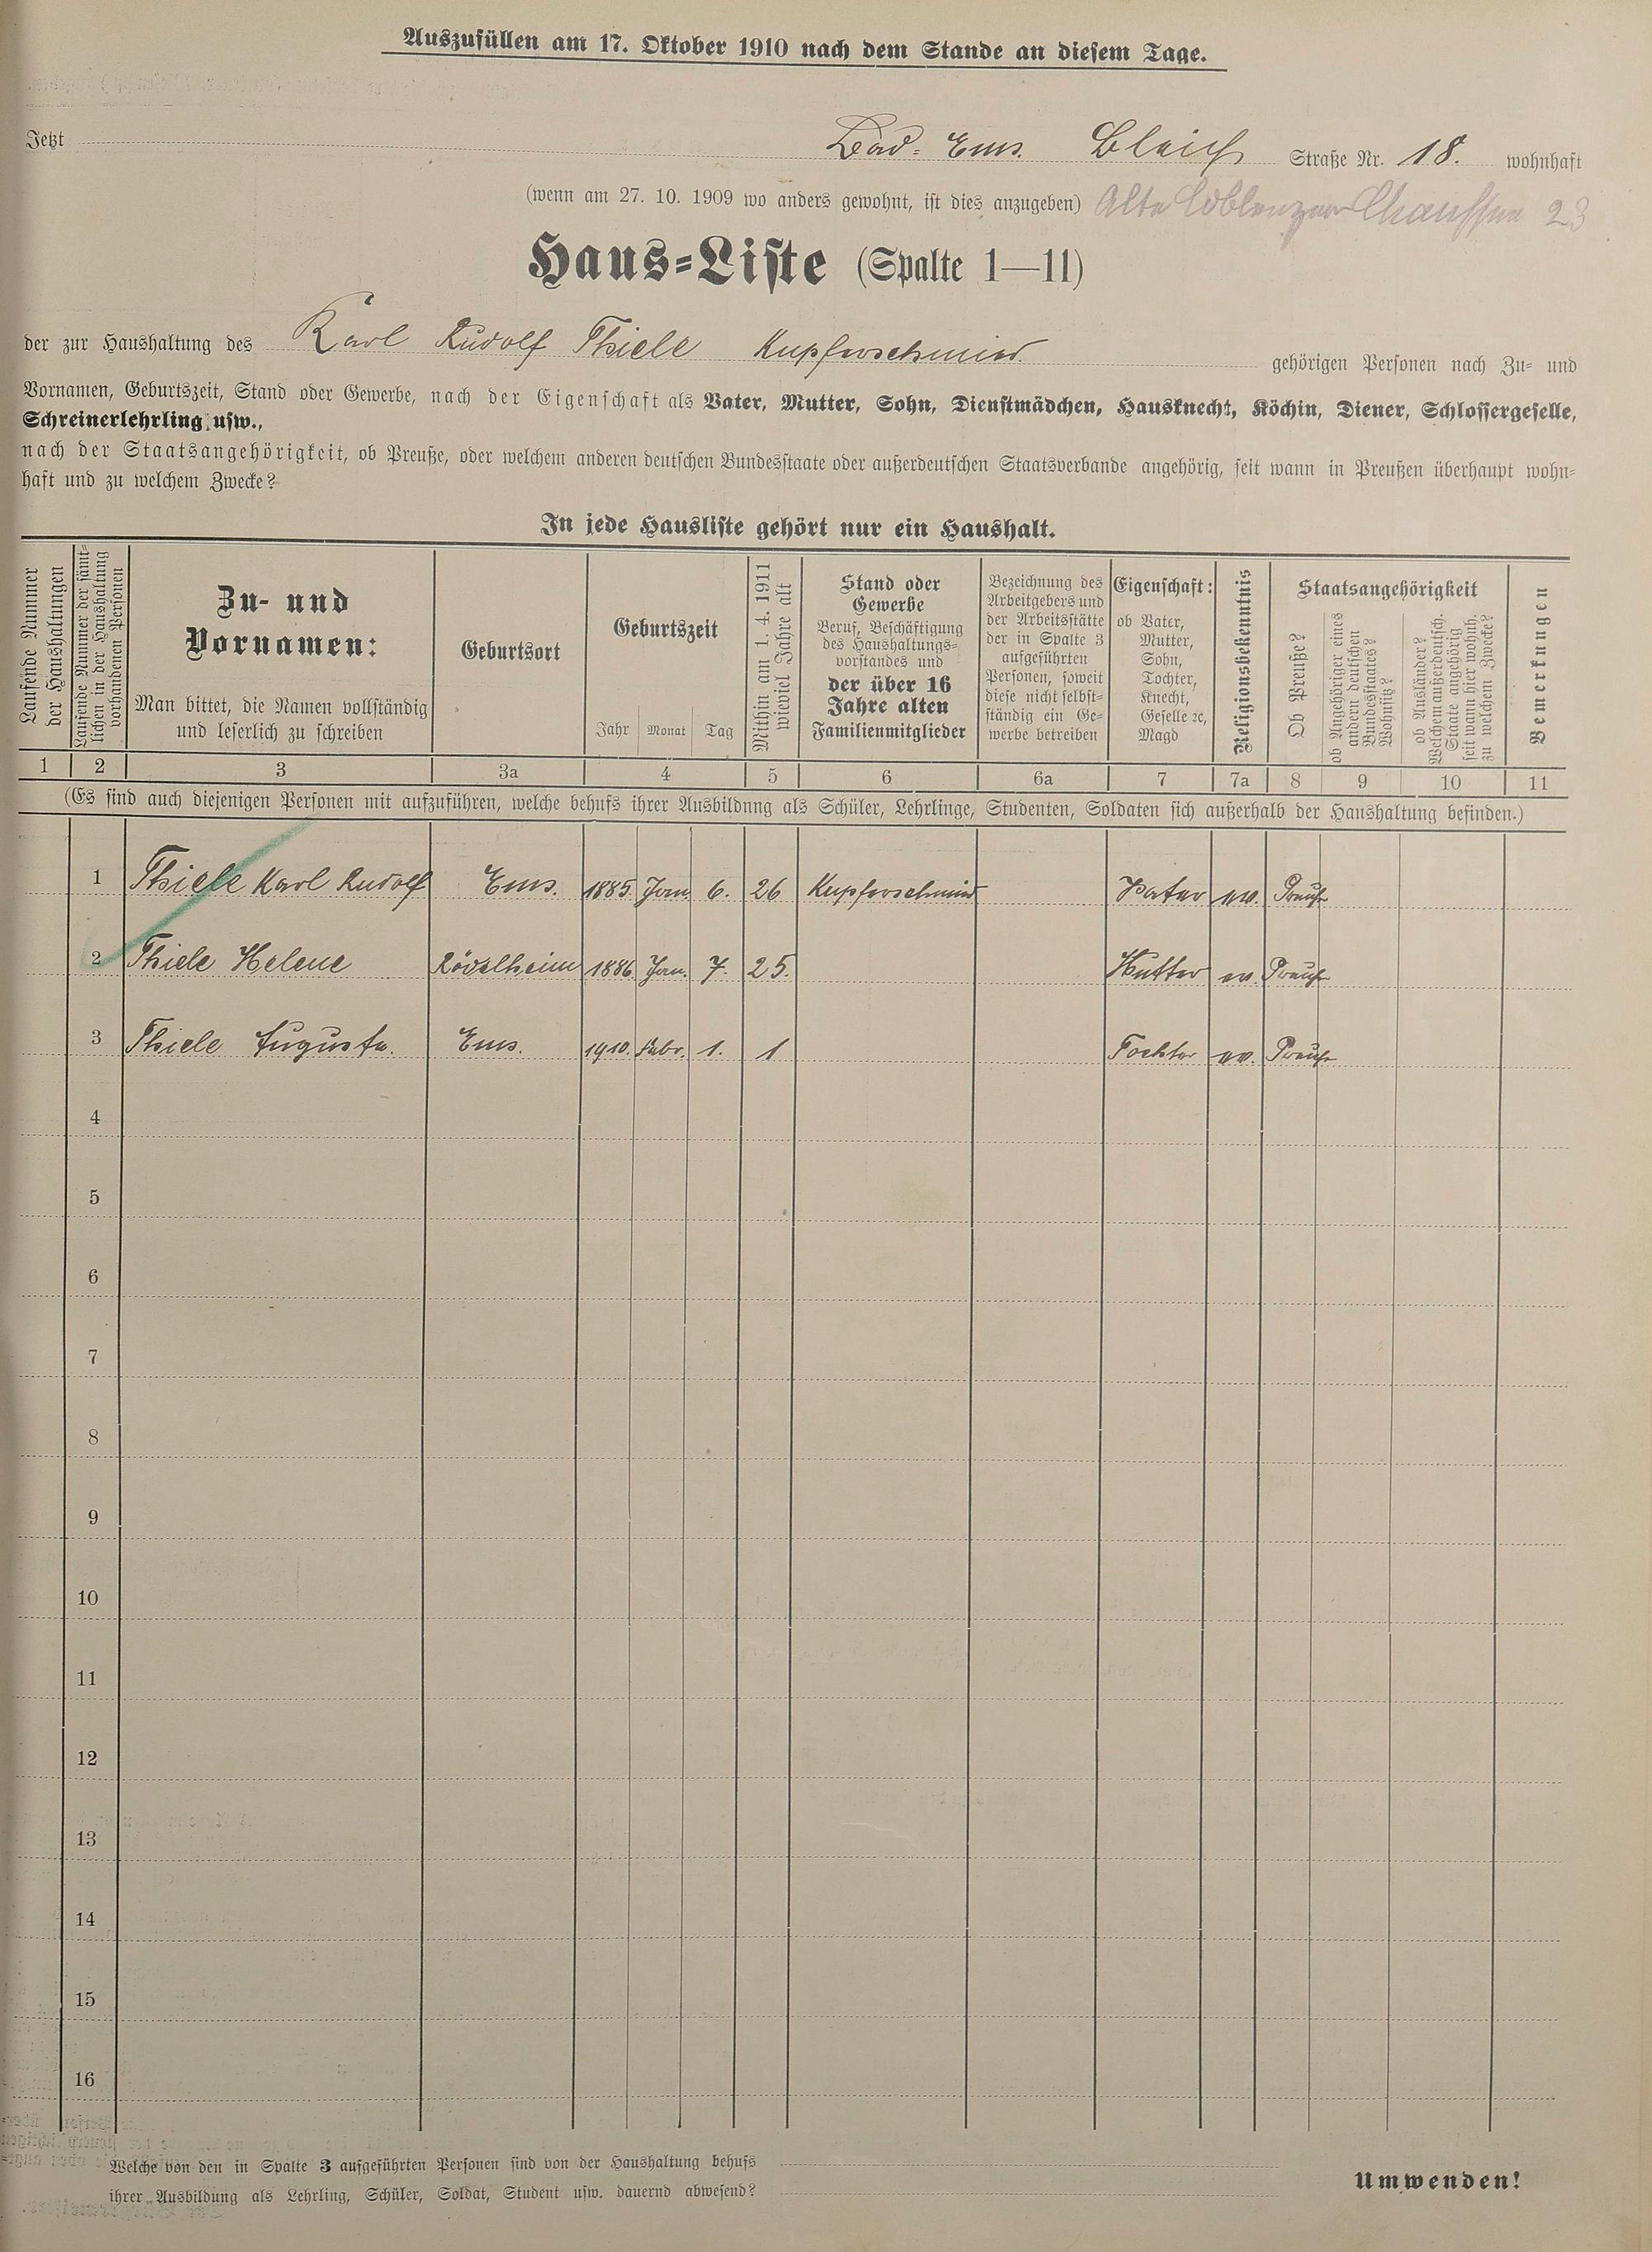 Auszufüllen am 17. Oktober 1910 nach dem Stande an diesem Tage.
Jetzt Bad-Ems. Bleich Straße Nr. 18. wohnhaft
(wenn am 27. 10. 1909 wo anders gewohnt, ist dies anzugeben) Alte Coblenzer Chaussee 23
Haus-Liste (Spalte 1—11)
der zur Haushaltung des Karl Rudolf Thiele Kupferschmied gehörigen Personen nach Zu- und
Vornamen, Geburtszeit, Stand oder Gewerbe, nach der Eigenschaft als Vater, Mutter, Sohn, Dienstmädchen, Hausknecht, Köchin, Diener, Schlossergeselle,
Schreinerlehrling usw.,
nach der Staatsangehörigkeit, ob Preuße, oder welchem anderen deutschen Bundesstaate oder außerdeutschen Staatsverbande angehörig, seit wann in Preußen überhaupt wohn-
haft und zu welchem Zwecke?
In jede Hausliste gehört nur ein Haushalt.
Laufende Nummer
der Haushaltungen
Laufende Nummer der sämt-
lichen in der Haushaltung
vorhandenen Personen
Zu- und
Vornamen:
Man bittet, die Namen vollständig
und leserlich zu schreiben
Geburtsort
Geburtszeit
Jahr Monat Tag
Mithin am 1. 4. 1911
wieviel Jahre alt
Stand oder
Gewerbe
Beruf, Beschäftigung
des Haushaltungs-
vorstandes und
der über 16
Jahre alten
Familienmitglieder
Bezeichnung des
Arbeitgebers und
der Arbeitsstätte
der in Spalte 3
aufgeführten
Personen, soweit
diese nicht selbst-
ständig ein Ge-
werbe betreiben
Eigenschaft:
ob Vater,
Mutter,
Sohn,
Tochter,
Knecht,
Geselle ꝛc,
Magd
Religionsbekenntnis
Staatsangehörigkeit
Ob Preuße?
ob Angehöriger eines
andern deutschen
Bundesstaates?
Wohnsitz?
ob Ausländer?
Welchem außerdeutsch.
Staate angehörig
seit wann hier wohnh.
zu welchem Zwecke?
Bemerkungen
1 2 3 3a 4 5 6 6a 7 7a 8 9 10 11
(Es sind auch diejenigen Personen mit aufzuführen, welche behufs ihrer Ausbildung als Schüler, Lehrlinge, Studenten, Soldaten sich außerhalb der Haushaltung befinden.)
1 Thiele Karl Rudolf Ems. 1885. Jan. 6. 26 Kupferschmied Vater ev. Preuße
2 Thiele Helene Rödelheim 1886. Jan. 7. 25. Mutter ev. Preuße
3 Thiele Auguste. Ems. 1910. Febr. 1. 1 Tochter ev. Preuße
4
5
6
7
8
9
10
11
12
13
14
15
16
Welche von den in Spalte 3 aufgeführten Personen sind von der Haushaltung behufs
ihrer Ausbildung als Lehrling, Schüler, Soldat, Student usw. dauernd abwesend?
Umwenden!